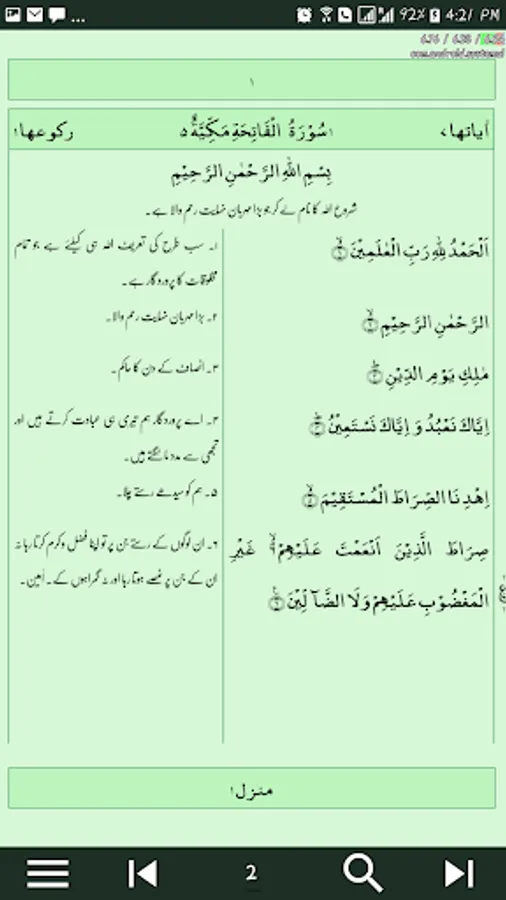 92% 4:21 PM
com.android.systemui
۱
اٰیاتہا، ۱سُوْرَۃُ الْفَاتِحَۃِ مَكِّیَّۃٌ ۵ رکوعہا۱
بِسْمِ اللّٰہِ الرَّحْمٰنِ الرَّحِیْمِ
شروع اللہ کا نام لے کر جو بڑا مہربان نہایت رحم والا ہے۔
اَلْحَمْدُ لِلّٰہِ رَبِّ الْعٰلَمِیْنَ
۱۔ سب طرح کی تعریف اللہ ہی کیلئے ہے جو تمام
مخلوقات کا پروردگار ہے۔
الرَّحْمٰنِ الرَّحِیْمِ
۲۔ بڑا مہربان نہایت رحم والا۔
مٰلِكِ یَوْمِ الدِّیْنِ
۳۔ انصاف کے دن کا حاکم۔
اِیَّاكَ نَعْبُدُ وَ اِیَّاكَ نَسْتَعِیْنُ
۴۔ اے پروردگار ہم تیری ہی عبادت کرتے ہیں اور
تجھی سے مدد مانگتے ہیں۔
اِہْدِنَا الصِّرَاطَ الْمُسْتَقِیْمَ
۵۔ ہم کو سیدھے رستے چلا۔
صِرَاطَ الَّذِیْنَ اَنْعَمْتَ عَلَیْہِمْ غَیْرِ
الْمَغْضُوْبِ عَلَیْہِمْ وَلَا الضَّآلِّیْنَ
۶۔ ان لوگوں کے رستے جن پر تو اپنا فضل و کرم کرتا رہا نہ
ان کے جن پر غصے ہوتا رہا اور نہ گمراہوں کے۔ اٰمین۔
منزل۱
2